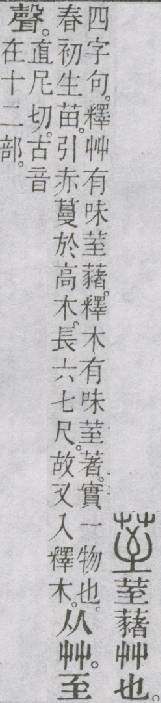 荎荎藸艸也。
四字句。釋艸有味荎藸。釋木有味荎著。實一物也。
春初生苗。引赤蔓於高木。長六七尺。故又入釋木。
从艸。至
聲。
直尼切。古音
在十二部。